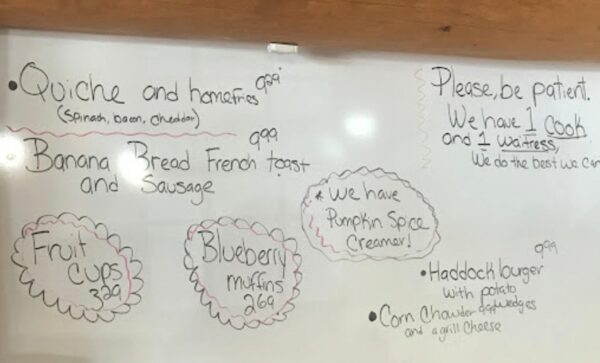 • Quiche and homefries 9.29
(Spinach, bacon, cheddar)
Banana Bread French toast 9.99
and Sausage
Fruit
cups
3.29
Blueberry
muffins
2.69
* We have
Pumpkin Spice
Creamer!
Please, be patient.
We have 1 cook
and 1 waitress,
We do the best we can
• Haddock burger 9.99
with potato
wedges
• Corn Chowder 9.99
and a grill cheese